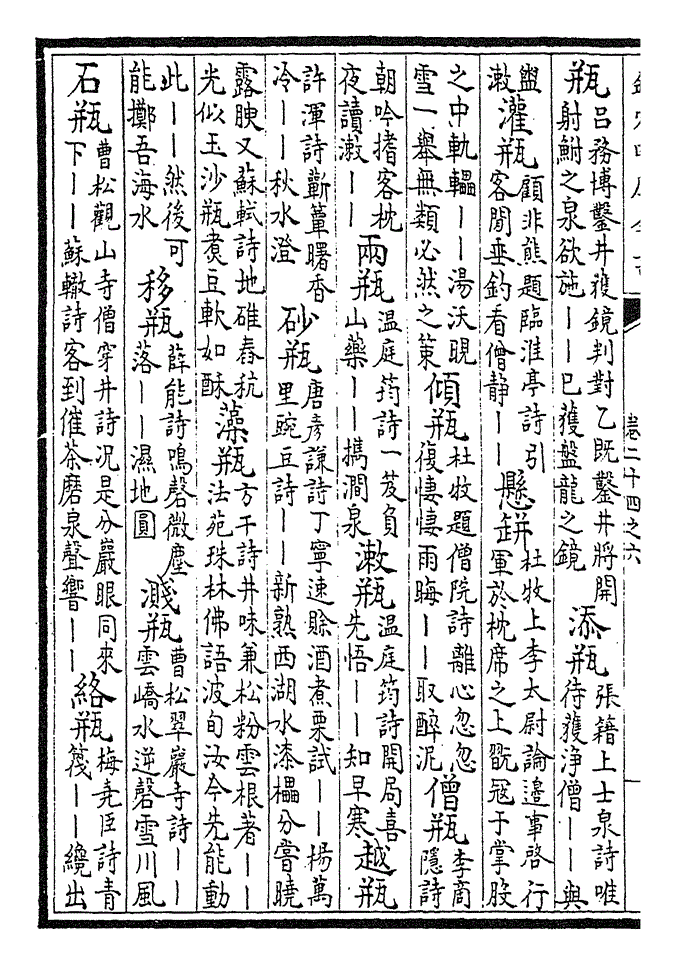 卷二十四之六
瓶呂務博鑿井獲鏡判對乙既鑿井將開射鮒之泉欲施——已獲盤龍之鏡 添瓶張籍上士泉詩唯待獲淨僧——與
盥漱 灌瓶顧非熊題臨淮亭詩引客閒垂釣看僧靜—— 懸缾杜牧上李太尉論邊事啓行軍於枕席之上翫冠于掌股
之中軌轀——湯沃晛雪一舉無類必然之策 傾瓶杜牧題僧院詩離心忽忽復悽悽雨晦——取醉泥 僧瓶李商隱詩
朝吟揩客枕夜讀漱—— 兩瓶温庭筠詩一笈負山藥——擕澗泉 漱瓶温庭筠詩開局喜先悟——知早寒 越瓶
許渾詩蘄簟曙香冷——秋水澄 砂瓶唐彦謙詩丁寧速賒酒煮栗試——揚萬里豌豆詩——新熟西湖水漆櫑分嘗曉
露腴又蘇軾詩地碓舂秔光似玉沙瓶煑豆軟如酥 藻瓶方干詩井味兼松粉雲根著——法苑珠林佛語波旬汝今先能動
此——然後可能擲吾海水 移瓶薛能詩鳴磬微塵落——濕地圓 濺瓶曹松翠巖寺詩——雲嶠水逆磬雪川風
石瓶曹松觀山寺僧穿井詩况是分巖眼同來下——蘇轍詩客到催茶磨泉聲響—— 絡瓶梅堯臣詩青篾——纜出